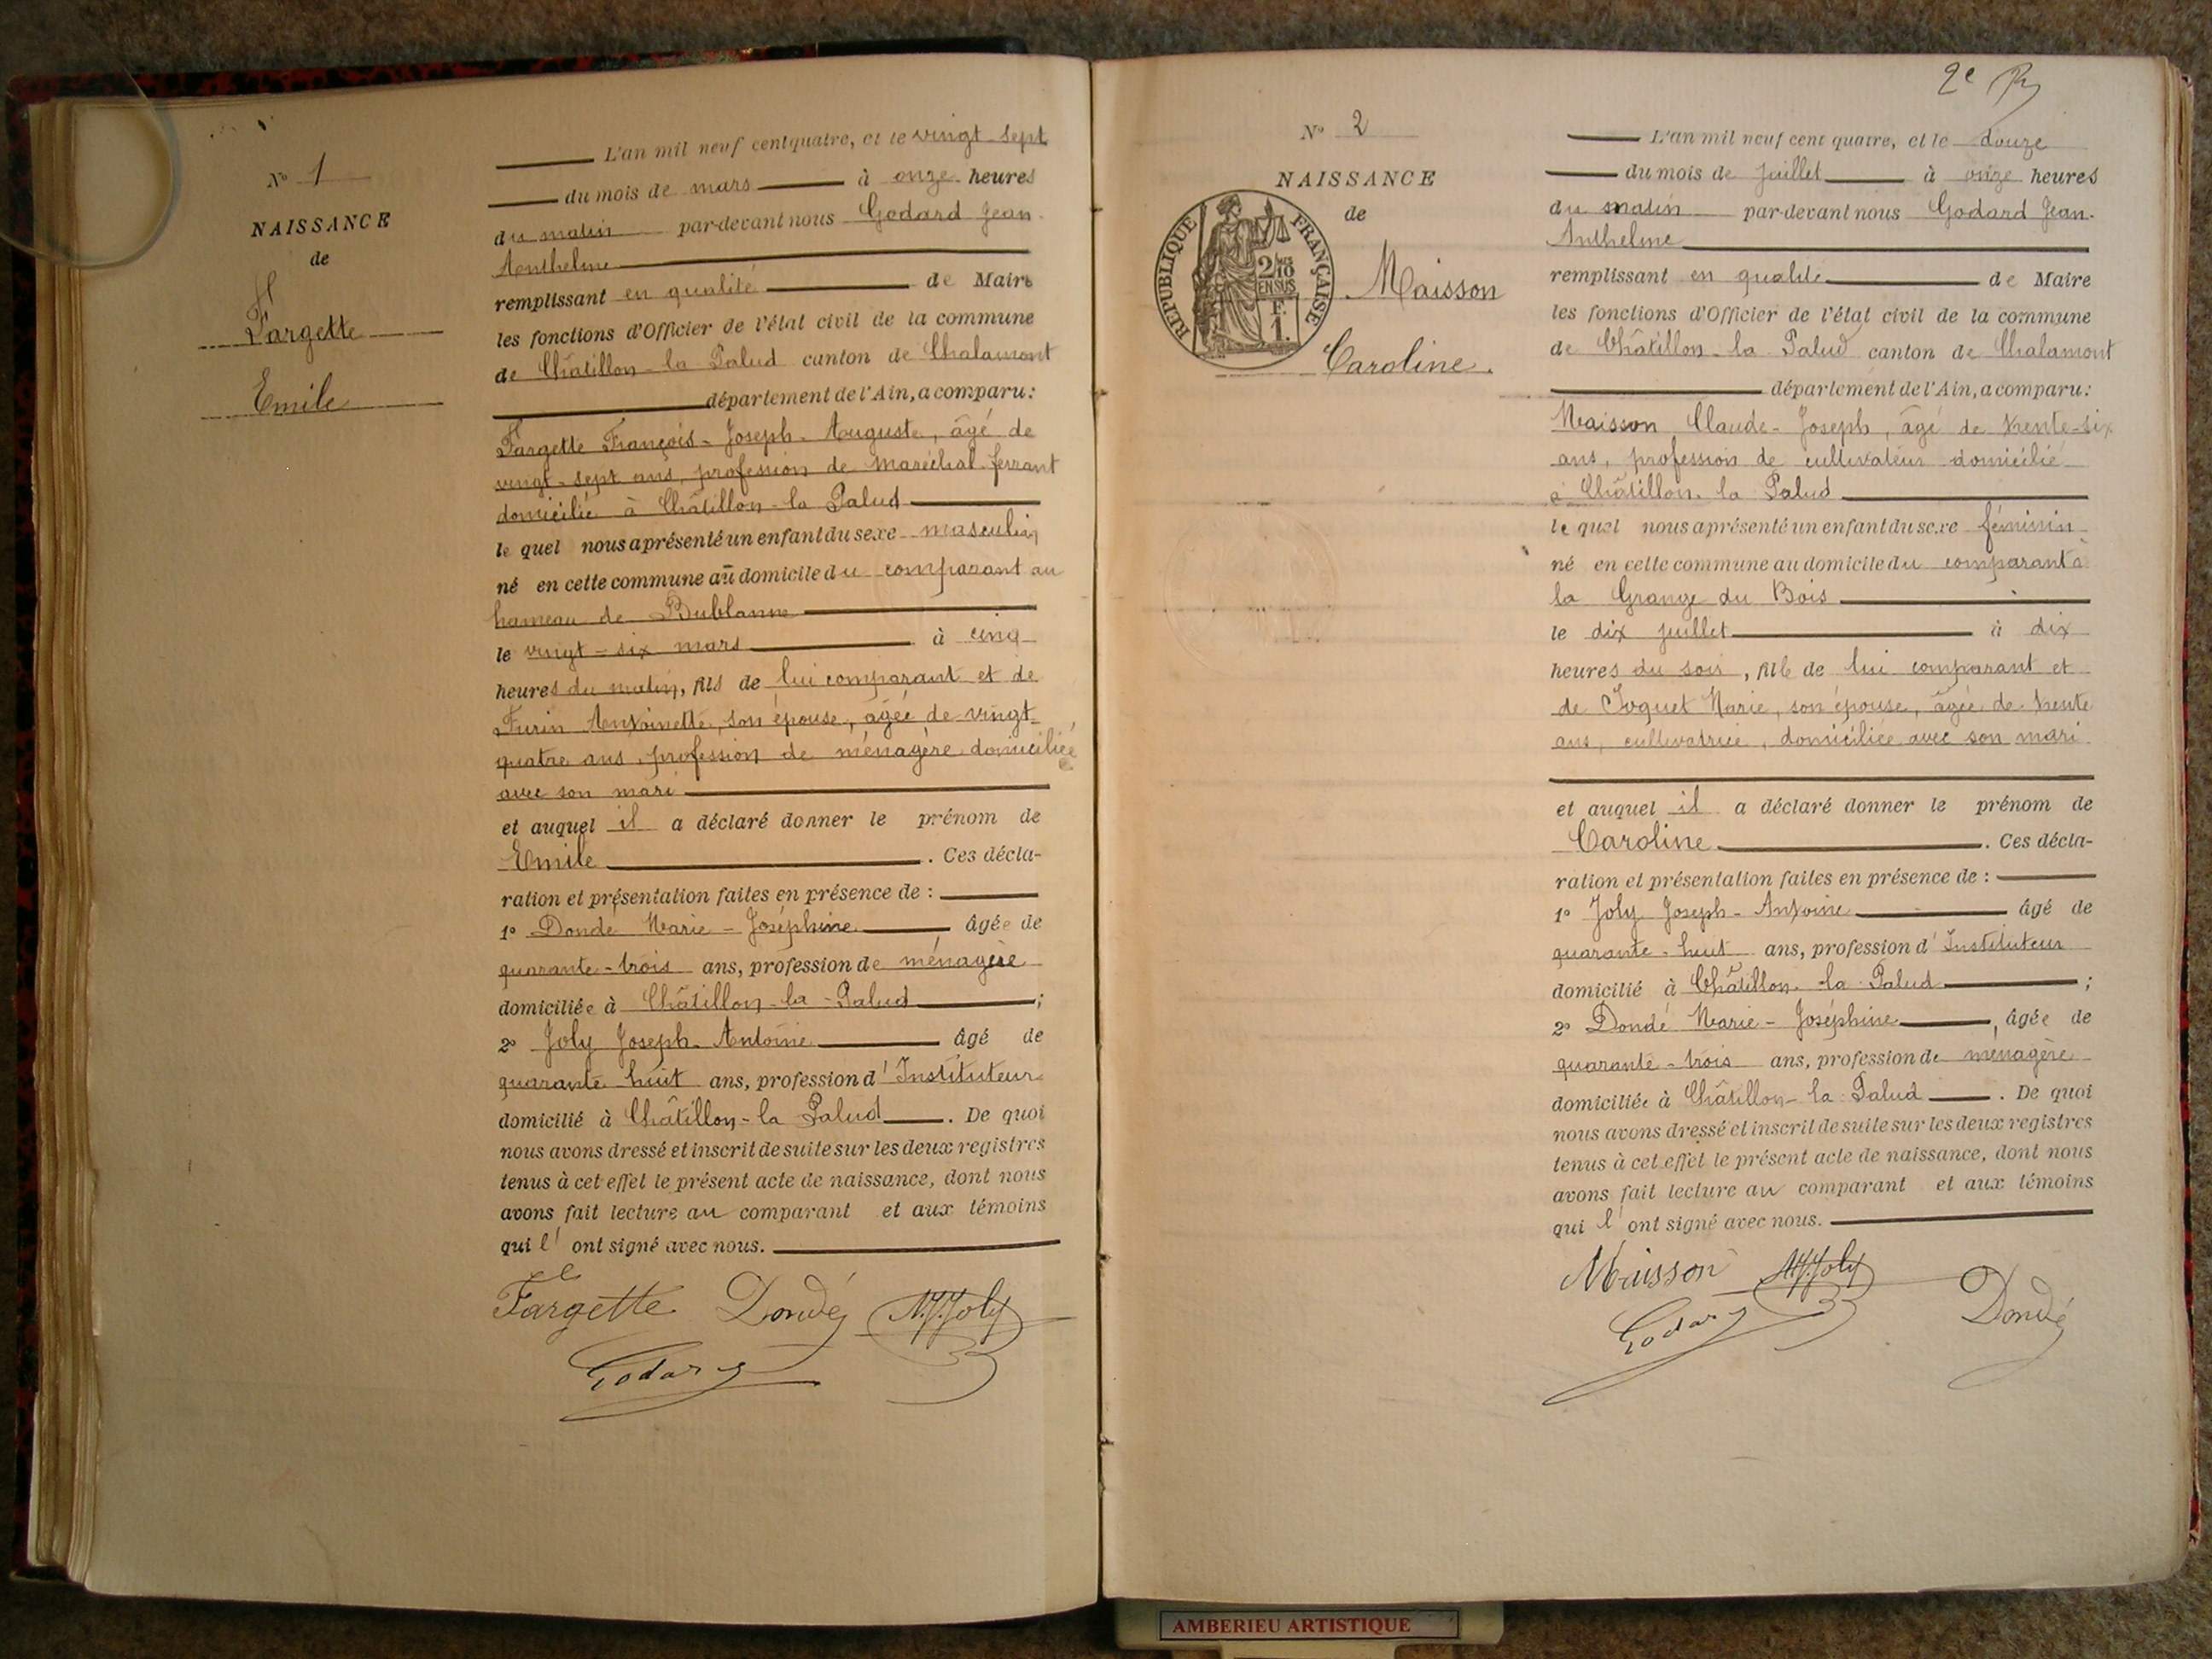 N° 1
NAISSANCE
de
Fargette
Emile
L'an mil neuf cent quatre, et le vingt-sept
du mois de mars à onze heures
du matin par-devant nous Godard Jean-
Anthelme
remplissant en qualité de Maire
les fonctions d'Officier de l'état civil de la commune
de Châtillon-la-Palud canton de Chalamont
département de l'Ain, a comparu:
Fargette François-Joseph-Auguste, âgé de
vingt-sept ans, profession de maréchal-ferrant
domicilié à Châtillon-la-Palud
le quel nous a présenté un enfant du sexe masculin
né en cette commune au domicile du comparant au
hameau de Bublanne
le vingt-six mars à cinq
heures du matin, fils de lui comparant et de
Furin Antoinette, son épouse, âgée de vingt-
quatre ans, profession de ménagère domiciliée
avec son mari
et auquel il a déclaré donner le prénom de
Emile. Ces décla-
ration et présentation faites en présence de :
1° Dondé Marie-Joséphine âgée de
quarante-trois ans, profession de ménagère
domiciliée à Châtillon-la-Palud ;
2° Joly Joseph-Antoine âgé de
quarante-huit ans, profession d'Instituteur
domicilié à Châtillon-la Palud. De quoi
nous avons dressé et inscrit de suite sur les deux registres
tenus à cet effet le présent acte de naissance, dont nous
avons fait lecture au comparant et aux témoins
qui l'ont signé avec nous.
Fargette Dondé Joly
Godard
2e
N° 2
NAISSANCE
de
REPUBLIQUE FRANÇAISE
2/10
EN SUS
F.
1.
Maisson
Caroline.
L'an mil neuf cent quatre, et le douze
du mois de juillet à onze heures
du matin par-devant nous Godard Jean-
Anthelme
remplissant en qualité de Maire
les fonctions d'Officier de l'état civil de la commune
de Châtillon-la-Palud canton de Chalamont
département de l'Ain, a comparu:
Maisson Claude-Joseph, âgé de trente-six
ans, profession de cultivateur domicilié
à Châtillon-la-Palud
le quel nous a présenté un enfant du sexe féminin
né en cette commune au domicile du comparant à
la Grange du Bois
le dix juillet à dix
heures du soir, fille de lui comparant et
de Marie, son épouse, âgée de trente
ans, cultivatrice, domiciliée avec son mari
et auquel il a déclaré donner le prénom de
Caroline. Ces décla-
ration et présentation faites en présence de :
1° Joly Joseph-Antoine âgé de
quarante-huit ans, profession d'Instituteur
domicilié à Châtillon-la-Palud ;
2° Dondé Marie-Joséphine, âgée de
quarante-trois ans, profession de ménagère
domiciliée à Châtillon-la-Palud. De quoi
nous avons dressé et inscrit de suite sur les deux registres
tenus à cet effet le présent acte de naissance, dont nous
avons fait lecture au comparant et aux témoins
qui l'ont signé avec nous.
Maisson Joly
Godard Dondé
AMBERIEU ARTISTIQUE